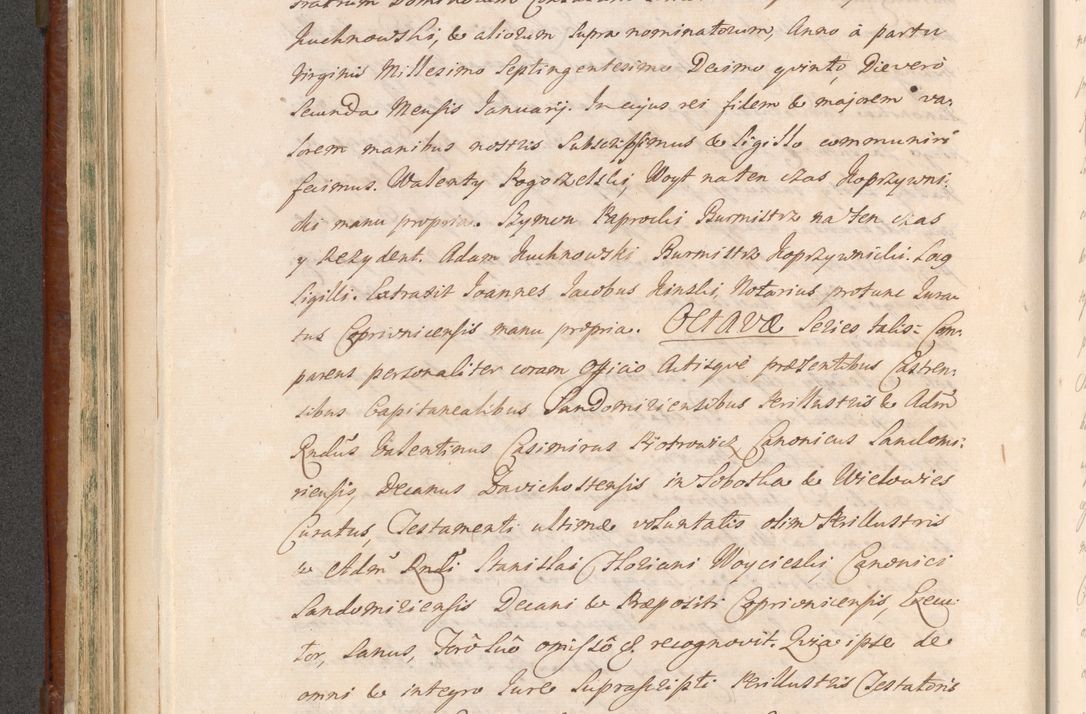 Kuchnowski, & aliorum supra nominatorum, Anno à partu
Virginis Millesimo Septingentesimo Decimo qvinto, Die verò
Secunda Mensis Januarij. In cujus rei fidem & majorem va-
lorem manibus nostris subscripsimus & sigillo communiri
fecimus. Walenty Rogozelski, Woyt na ten czas Koprzywni-
cki manu propria. Szymon Paprocki Burmistrz na ten czas
y Rezydent. Adam Kuchnowski Burmistrz Koprzywnicki. Locg
Sigilli. Extraxit Joannes Jacobus Kinski, Notarius protunc Jura-
tus Coprivnicensis manu propria. Octavæ Series talis: Com-
parens personaliter coram Officio Actisque præsentibus Castren-
sibus Capitanealibus Sandomiriensibus Perillustris & Adm̃
Rndũs Valentinus Casimirus Piotrowicz Canonicus Sandomi-
riensis, Decanus Zavichostensis in Sobotka & Wielowies
Curatus, Testamenti ultimæ voluntatis olim Perillustris
& Adm̃ Rndi Stanislai Floriani Woycieski Canonici
Sandomiriensis Decani & Præpositi Coprivnicensis, Execu-
tor, Sanus, Forô Suô omissô &. recognovit. Quia ipse de
omni & integro Jure Suprascripti Perillustris Testatoris